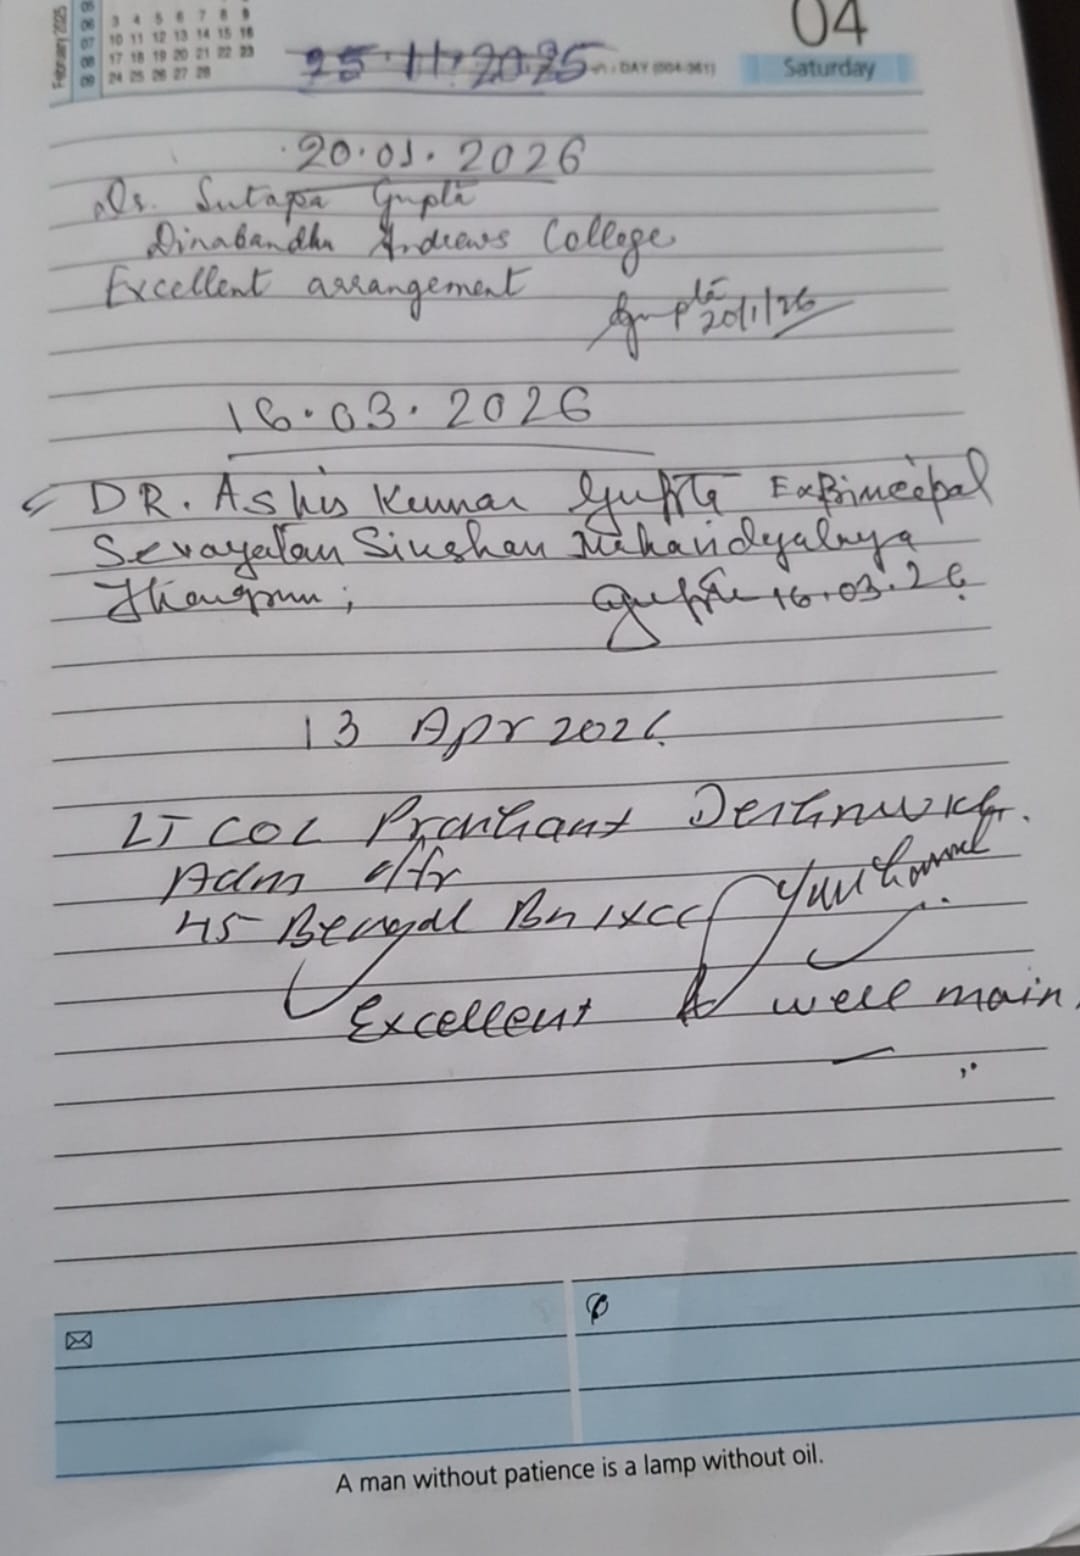 February 2025
3 4 5 6 7 8 9
10 11 12 13 14 15 16
17 18 19 20 21 22 23
24 25 26 27 28
05
06
07
08
09
25.11.2025
DAY (004-361)
04
Saturday
20.01.2026
Dr. Sutapa Gupta
Dinabandhu Andrews College
Excellent arrangement
Gupta 20/1/26
16.03.2026
DR. Ashis Kumar Gupta Ex Principal
Mahavidyalaya
Gupta 16.03.26
13 Apr 2026
LT COL Prashant Deshmukh.
Adm offr
45 Bengal Bn NCC
Excellent & well main
A man without patience is a lamp without oil.